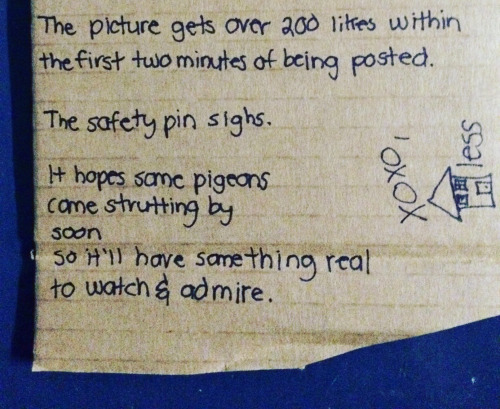 The picture gets over 200 likes within
the first two minutes of being posted.
The safety pin sighs.
It hopes some pigeons
come strutting by
soon
so it'll have something real
to watch & admire.
XOXO,
less